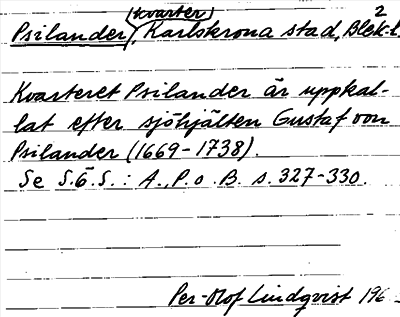 (kvarter) 2
Psilander, Karlskrona stad, Blek.l.
Kvarteret Psilander är uppkal-
lat efter sjöhjälten Gustaf von
Psilander (1669-1738).
Se S.G.S.: A., P. o. B. s. 327-330.
Per-Olof Lindqvist 196